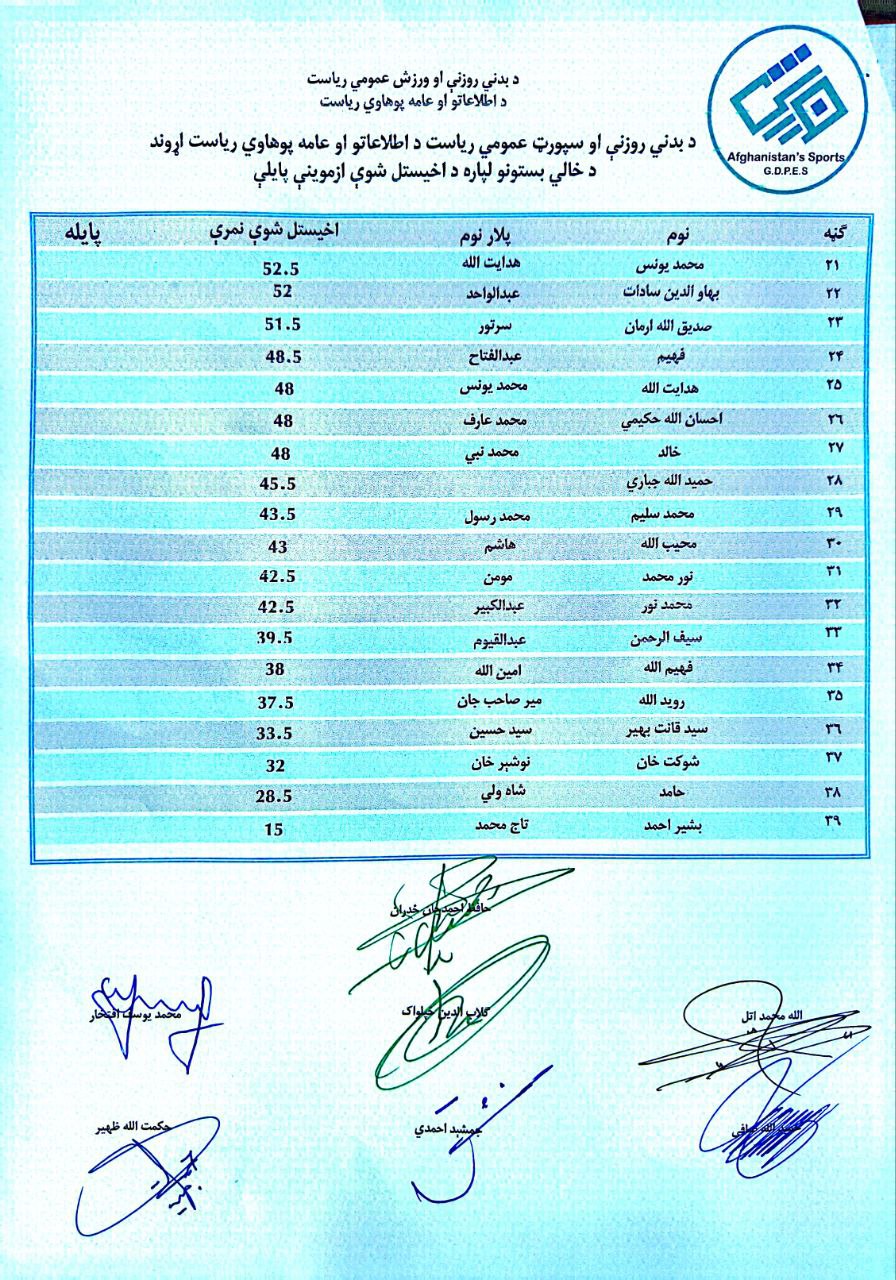 د بدني روزنې او ورزش عمومي ریاست
د اطلاعاتو او عامه پوهاوي ریاست
د بدني روزنې او سپورټ عمومي ریاست د اطلاعاتو او عامه پوهاوي ریاست اړوند
د خالي بستونو لپاره د اخیستل شوې ازموینې پایلې
Afghanistan's Sports
G.D.P.E.S
ګڼه نوم پلار نوم اخیستل شوې نمرې پایله
۲۱ محمد یونس هدایت الله 52.5
۲۲ بهاو الدین سادات عبدالواحد 52
۲۳ صدیق الله ارمان سرتور 51.5
۲۴ فهیم عبدالفتاح 48.5
۲۵ هدایت الله محمد یونس 48
۲٦ احسان الله حکیمي محمد عارف 48
۲۷ خالد محمد نبي 48
۲۸ حمید الله جباري 45.5
۲۹ محمد سلیم محمد رسول 43.5
۳۰ محیب الله هاشم 43
۳۱ نور محمد مومن 42.5
۳۲ محمد نور عبدالکبیر 42.5
۳۳ سیف الرحمن عبدالقیوم 39.5
۳۴ فهیم الله امین الله 38
۳۵ روید الله میر صاحب جان 37.5
۳٦ سید قانت بهیر سید حسین 33.5
۳۷ شوکت خان نوشېر خان 32
۳۸ حامد شاه ولي 28.5
۳۹ بشیر احمد تاج محمد 15
حافظ احمدجان خدران
الله محمد اتل ګلاب الدین خپلواک محمد یوسف افتخار
الله صافي جمشېد احمدي حکمت الله ظهیر